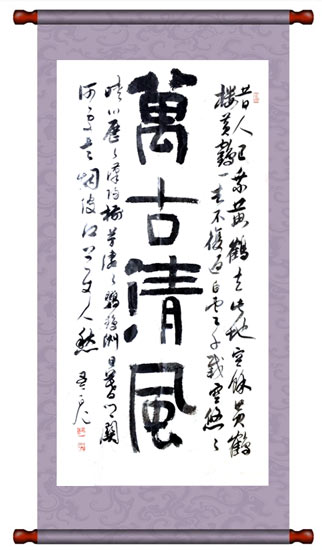 昔人已乘黃鶴去此地空餘黃鶴
樓黃鶴一去不復返白雲千載空悠々
萬古清風
晴川歷々漢陽樹芳萋々鸚鵡洲日暮鄉關
何處是烟波江上使人愁